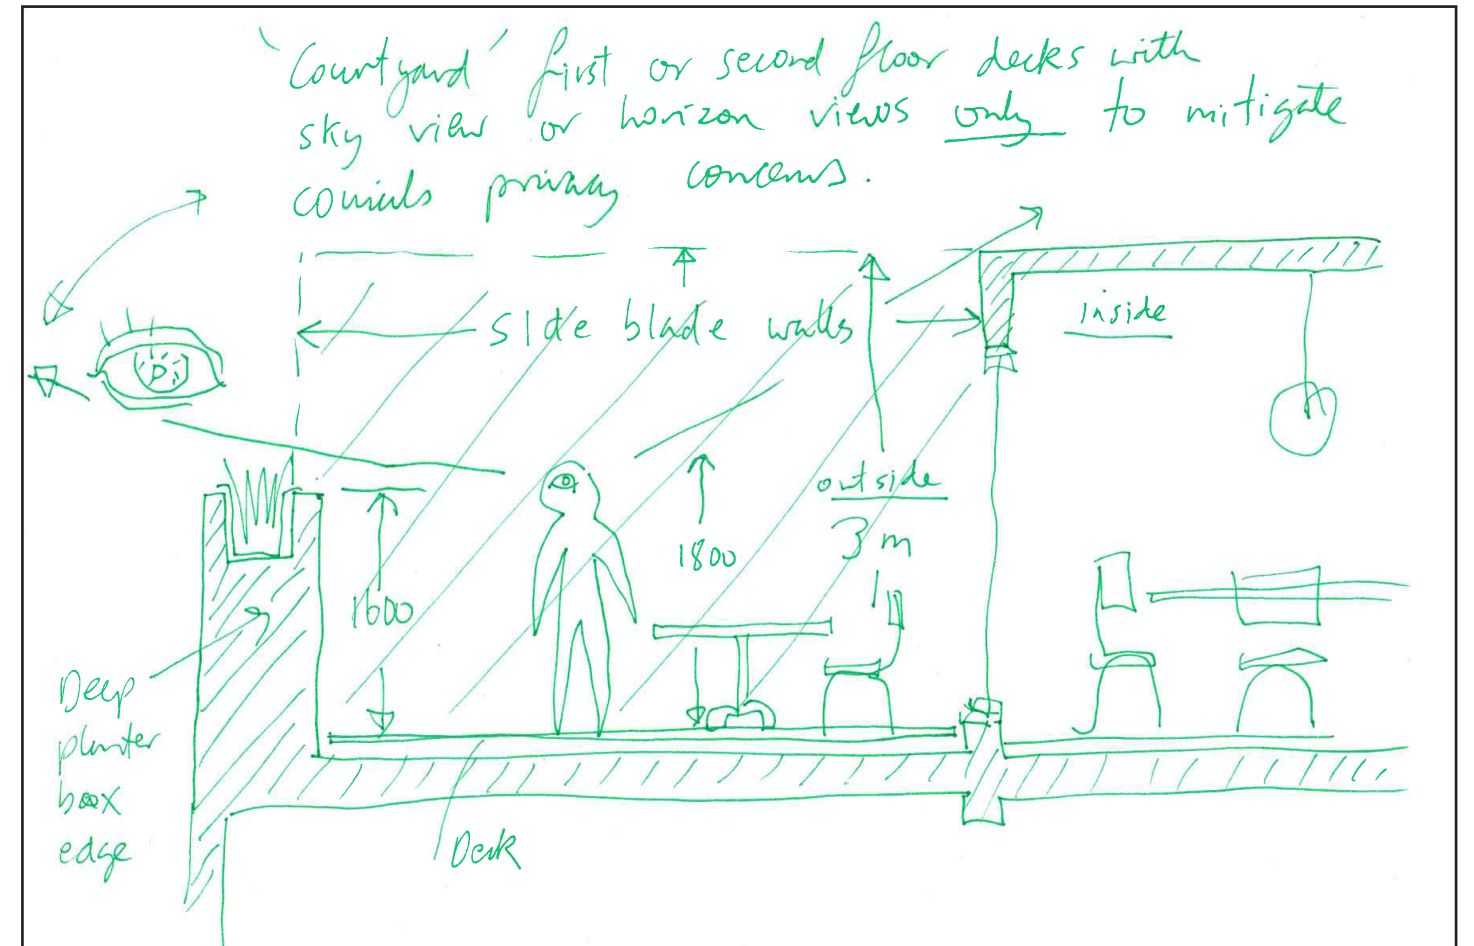 'Courtyard' first or second floor decks with
sky view or horizon views only to mitigate
councils privacy concerns.
side blade walls
inside
outside
3 m
1800
1600
Deep
planter
box
edge
Deck